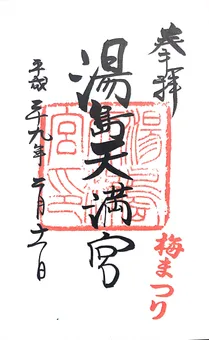 奉拝
梅まつり
湯島天満宮
平成二十九年二月十一日